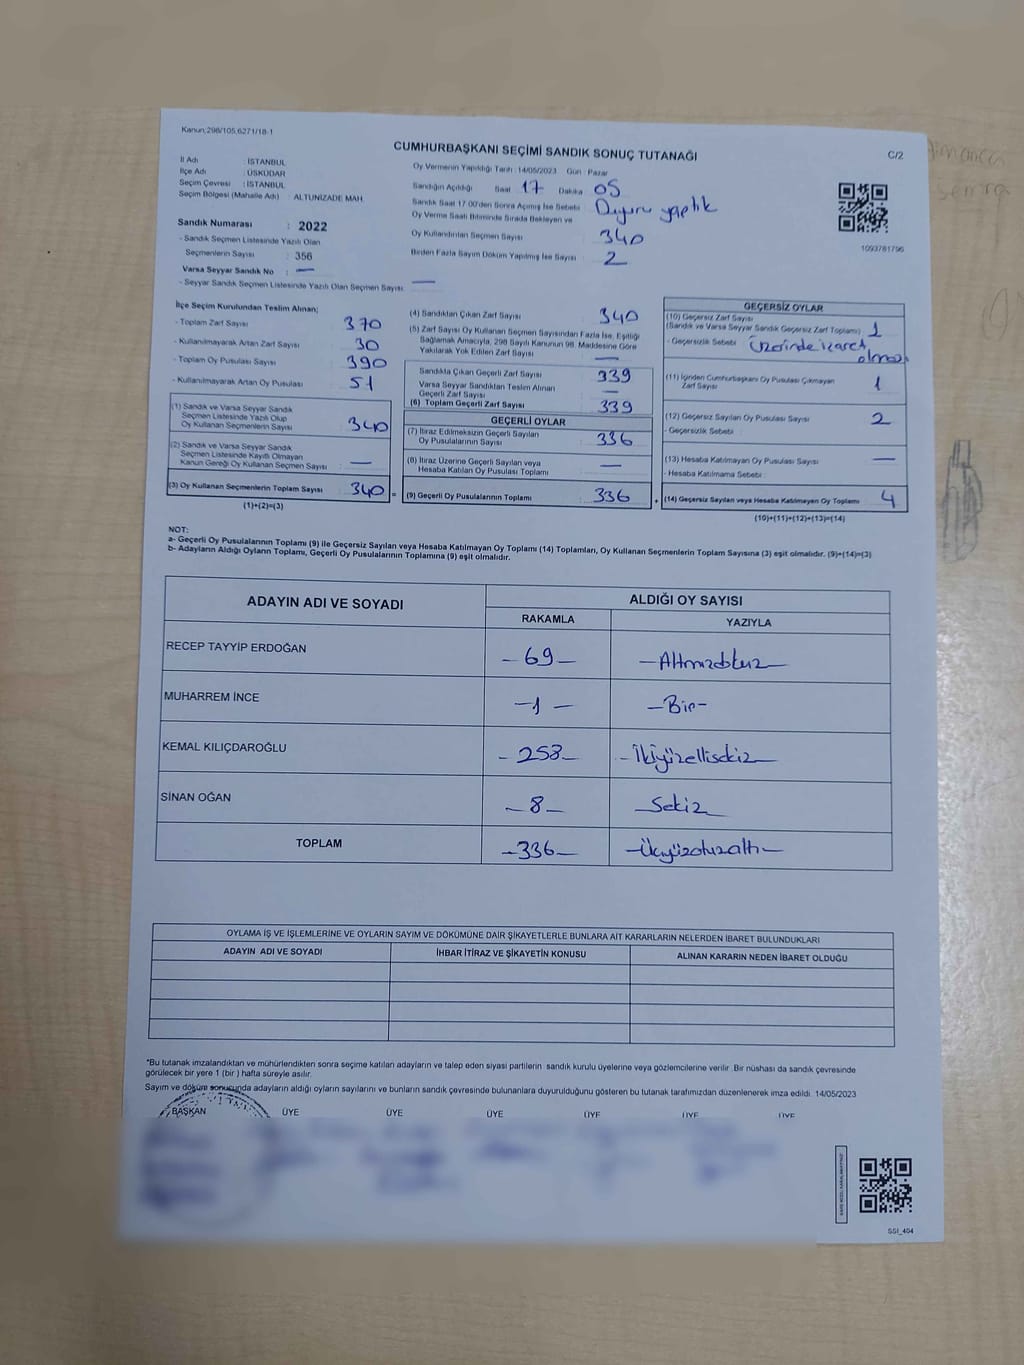 Kanun;298/105,6271/18-1
CUMHURBAŞKANI SEÇİMİ SANDIK SONUÇ TUTANAĞI
C/2
İl Adı : İSTANBUL
İlçe Adı : ÜSKÜDAR
Seçim Çevresi : İSTANBUL
Seçim Bölgesi (Mahalle Adı) : ALTUNİZADE MAH.
Sandık Numarası : 2022
- Sandık Seçmen Listesinde Yazılı Olan
Seçmenlerin Sayısı : 356
Varsa Seyyar Sandık No : —
- Seyyar Sandık Listesinde Yazılı Olan Seçmen Sayısı: —
Oy Vermenin Yapıldığı Tarih : 14/05/2023 Gün : Pazar
Sandığın Açıldığı Saat 17 Dakika 05
Sandık Saat 17.00'den Sonra Açılmış İse Sebebi : Duyuru yaptık
Oy Verme Saati Bitiminde Sırada Bekleyen ve
Oy Kullandırılan Seçmen Sayısı 340
Birden Fazla Sayım Döküm Yapılmış İse Sayısı : 2
1093781796
İlçe Seçim Kurulundan Teslim Alınan;
- Toplam Zarf Sayısı : 370
- Kullanılmayarak Artan Zarf Sayısı : 30
- Toplam Oy Pusulası Sayısı : 390
- Kullanılmayarak Artan Oy Pusulası : 51
(1) Sandık ve Varsa Seyyar Sandık
Seçmen Listesinde Yazılı Olup
Oy Kullanan Seçmenlerin Sayısı : 340
(2) Sandık ve Varsa Seyyar Sandık
Seçmen Listesinde Kayıtlı Olmayan
Kanun Gereği Oy Kullanan Seçmen Sayısı : —
(3) Oy Kullanan Seçmenlerin Toplam Sayısı : 340
(1)+(2)=(3)
=
(4) Sandıktan Çıkan Zarf Sayısı : 340
(5) Zarf Sayısı Oy Kullanan Seçmen Sayısından Fazla İse, Eşitliği
Sağlamak Amacıyla, 298 Sayılı Kanunun 98. Maddesine Göre
Yakılarak Yok Edilen Zarf Sayısı : —
Sandıkta Çıkan Geçerli Zarf Sayısı : 339
Varsa Seyyar Sandıktan Teslim Alınan
Geçerli Zarf Sayısı : —
(6) Toplam Geçerli Zarf Sayısı : 339
GEÇERLİ OYLAR
(7) İtiraz Edilmeksizin Geçerli Sayılan
Oy Pusulalarının Sayısı : 336
(8) İtiraz Üzerine Geçerli Sayılan veya
Hesaba Katılan Oy Pusulası Toplamı : —
(9) Geçerli Oy Pusulalarının Toplamı : 336
+
GEÇERSİZ OYLAR
(10) Geçersiz Zarf Sayısı
(Sandık ve Varsa Seyyar Sandık Geçersiz Zarf Toplamı) : 1
- Geçersizlik Sebebi : Üzerinde işaret
olması
(11) İçinden Cumhurbaşkanı Oy Pusulası Çıkmayan
Zarf Sayısı : 1
(12) Geçersiz Sayılan Oy Pusulası Sayısı : 2
- Geçersizlik Sebebi :
(13) Hesaba Katılmayan Oy Pusulası Sayısı : —
- Hesaba Katılmama Sebebi :
(14) Geçersiz Sayılan veya Hesaba Katılmayan Oy Toplamı : 4
(10)+(11)+(12)+(13)=(14)
NOT:
a- Geçerli Oy Pusulalarının Toplamı (9) ile Geçersiz Sayılan veya Hesaba Katılmayan Oy Toplamı (14) Toplamları, Oy Kullanan Seçmenlerin Toplam Sayısına (3) eşit olmalıdır. (9)+(14)=(3)
b- Adayların Aldığı Oyların Toplamı, Geçerli Oy Pusulalarının Toplamına (9) eşit olmalıdır.
ADAYIN ADI VE SOYADI
ALDIĞI OY SAYISI
RAKAMLA
YAZIYLA
RECEP TAYYİP ERDOĞAN -69- -Altmışdokuz-
MUHARREM İNCE -1- -Bir-
KEMAL KILIÇDAROĞLU -258- -İkiyüzellisekiz-
SİNAN OĞAN -8- -Sekiz-
TOPLAM -336- -Üçyüzotuzaltı-
OYLAMA İŞ VE İŞLEMLERİNE VE OYLARIN SAYIM VE DÖKÜMÜNE DAİR ŞİKAYETLERLE BUNLARA AİT KARARLARIN NELERDEN İBARET BULUNDUKLARI
ADAYIN ADI VE SOYADI
İHBAR İTİRAZ VE ŞİKAYETİN KONUSU
ALINAN KARARIN NEDEN İBARET OLDUĞU
*Bu tutanak imzalandıktan ve mühürlendikten sonra seçime katılan adayların ve talep eden siyasi partilerin sandık kurulu üyelerine veya gözlemcilerine verilir .Bir nüshası da sandık çevresinde
görülecek bir yere 1 (bir ) hafta süreyle asılır.
Sayım ve döküm sonucunda adayların aldığı oyların sayılarını ve bunların sandık çevresinde bulunanlara duyurulduğunu gösteren bu tutanak tarafımızdan düzenlenerek imza edildi. 14/05/2023
BAŞKAN ÜYE ÜYE ÜYE ÜYE ÜYE ÜYE
SSI_464